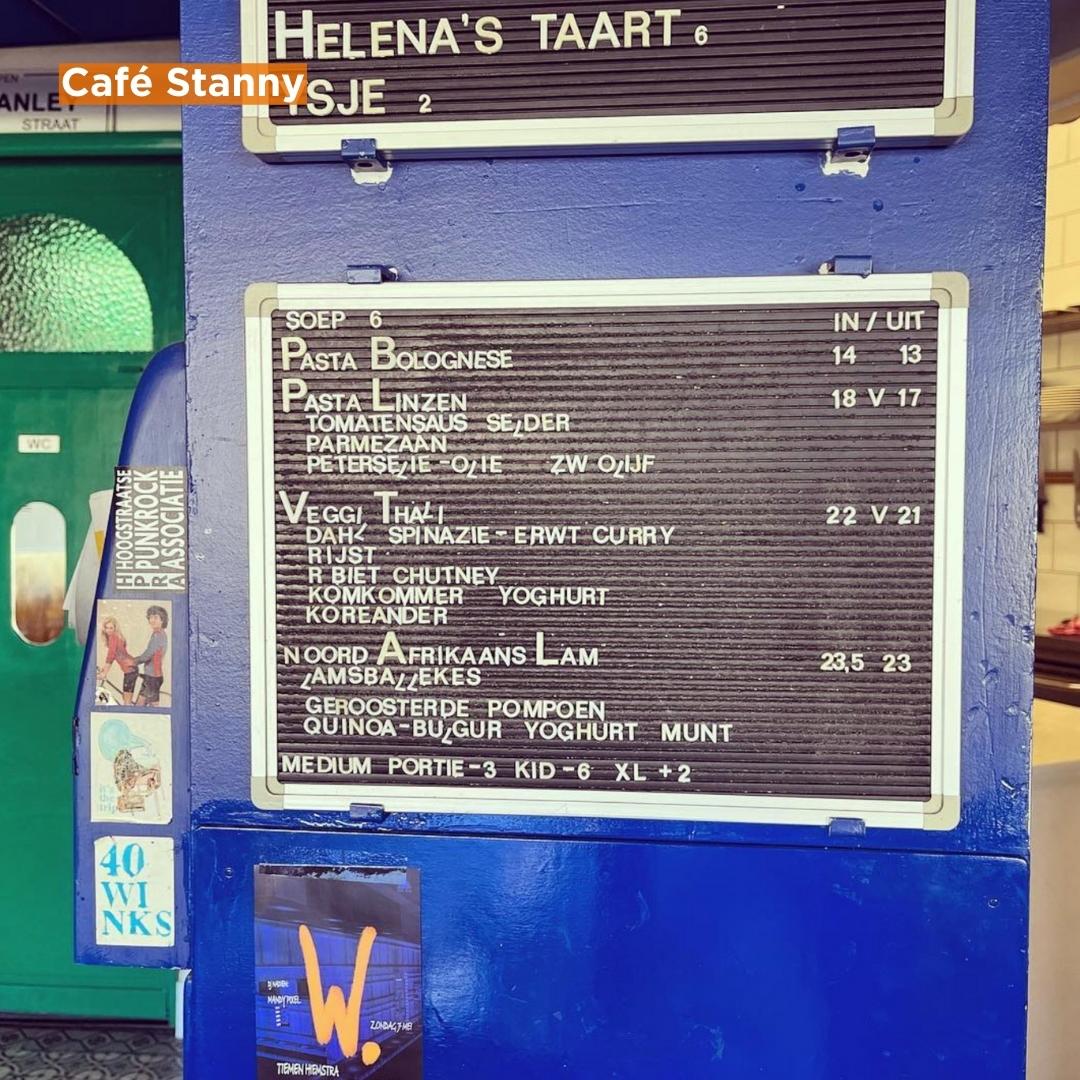 HELENA'S TAART 6
YSJE 2
Café Stanny
ANLEY
STRAAT
WC
SOEP 6 IN / UIT
PASTA BOLOGNESE 14 13
PASTA LINZEN 18 V 17
TOMATENSAUS SELDER
PARMEZAAN
PETERSELIE-OLIE ZW OLIJF
VEGGI THALI 22 V 21
DAHL SPINAZIE-ERWT CURRY
RIJST
R BIET CHUTNEY
KOMKOMMER YOGHURT
KOREANDER
NOORD AFRIKAANS LAM 23,5 23
LAMSBALLEKES
GEROOSTERDE POMPOEN
QUINOA-BULGUR YOGHURT MUNT
MEDIUM PORTIE-3 KID-6 XL +2
HOOGSTRAATSE
PUNKROCK
ASSOCIATIE
it's
the
trip
40
WI
NKS
W.
MANDY PIXEL
ZONDAG 7 MEI
TIEMEN HIEMSTRA